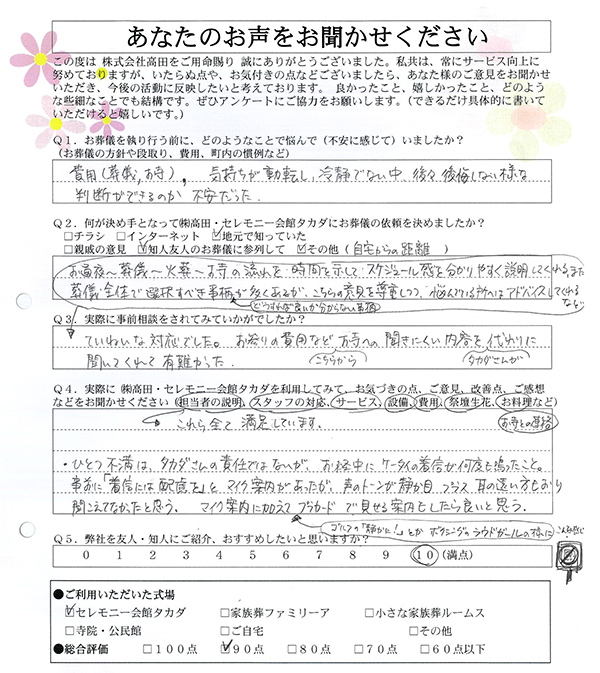 あなたのお声をお聞かせください
この度は 株式会社高田をご用命賜り 誠にありがとうございました。私共は、常にサービス向上に
努めておりますが、いたらぬ点や、お気付きの点などございましたら、あなた様のご意見をお聞かせ
いただき、今後の活動に反映したいと考えております。 良かったこと、嬉しかったこと、どのよう
な些細なことでも結構です。ぜひアンケートにご協力をお願いします。（できるだけ具体的に書いて
いただけると嬉しいです。）
Q１．お葬儀を執り行う前に、どのようなことで悩んで（不安に感じて）いましたか？
（お葬儀の方針や段取り、費用、町内の慣例など）
費用（葬儀，お寺）， 気持ちが動転し，冷静でない中，後々後悔しない様な
判断ができるのか 不安だった．
Q２．何が決め手となって㈱高田・セレモニー会館タカダにお葬儀の依頼を決めましたか？
□チラシ □インターネット ☑地元で知っていた
□親戚の意見 ☑知人友人のお葬儀に参列して ☑その他（自宅からの距離）
お通夜〜葬儀〜火葬〜お寺の流れを 時間を示して スケジュール感を分かりやすく説明してくれる また
葬儀全体で選択すべき事柄が多くあるが，こちらの意見を尊重しつつ，悩んでいる所へはアドバイスしてくれる
など
どうすれば良いか分からない事柄
Q３．実際に事前相談をされてみていかがでしたか？
ていねいな対応でした。お寺の費用など お寺への 聞きにくい内容を 代わりに
聞いてくれて 有難かった． こちらから タカダさんが
Q４．実際に ㈱高田・セレモニー会館タカダを利用してみて、お気づきの点、ご意見、改善点、ご感想
などをお聞かせください（担当者の説明、スタッフの対応、サービス、設備、費用、祭壇生花、お料理など）
これら全て 満足しています． お寺との連絡
・ひとつ不満は，タカダさんの責任ではないが，お経中に ケータイの着信が何度も鳴ったこと。
事前に「着信には配慮を」と マイク案内があったが，声のトーンが静か目 つ 耳の遠い方もおり
聞こえてなかったと思う． マイク案内に加えて プラカードで見せる案内もしたら良いと思う．
ゴルフの「静かに！」とか ボクシングのラウンドガールの様に こんな感じ
Q５．弊社を友人・知人にご紹介、おすすめしたいと思いますか？
０ １ ２ ３ ４ ５ ６ ７ ８ ９ １０（満点）
●ご利用いただいた式場
☑セレモニー会館タカダ □家族葬ファミリーア □小さな家族葬ルームス
□寺院・公民館 □ご自宅 □その他
●総合評価 □１００点 ☑９０点 □８０点 □７０点 □６０点以下